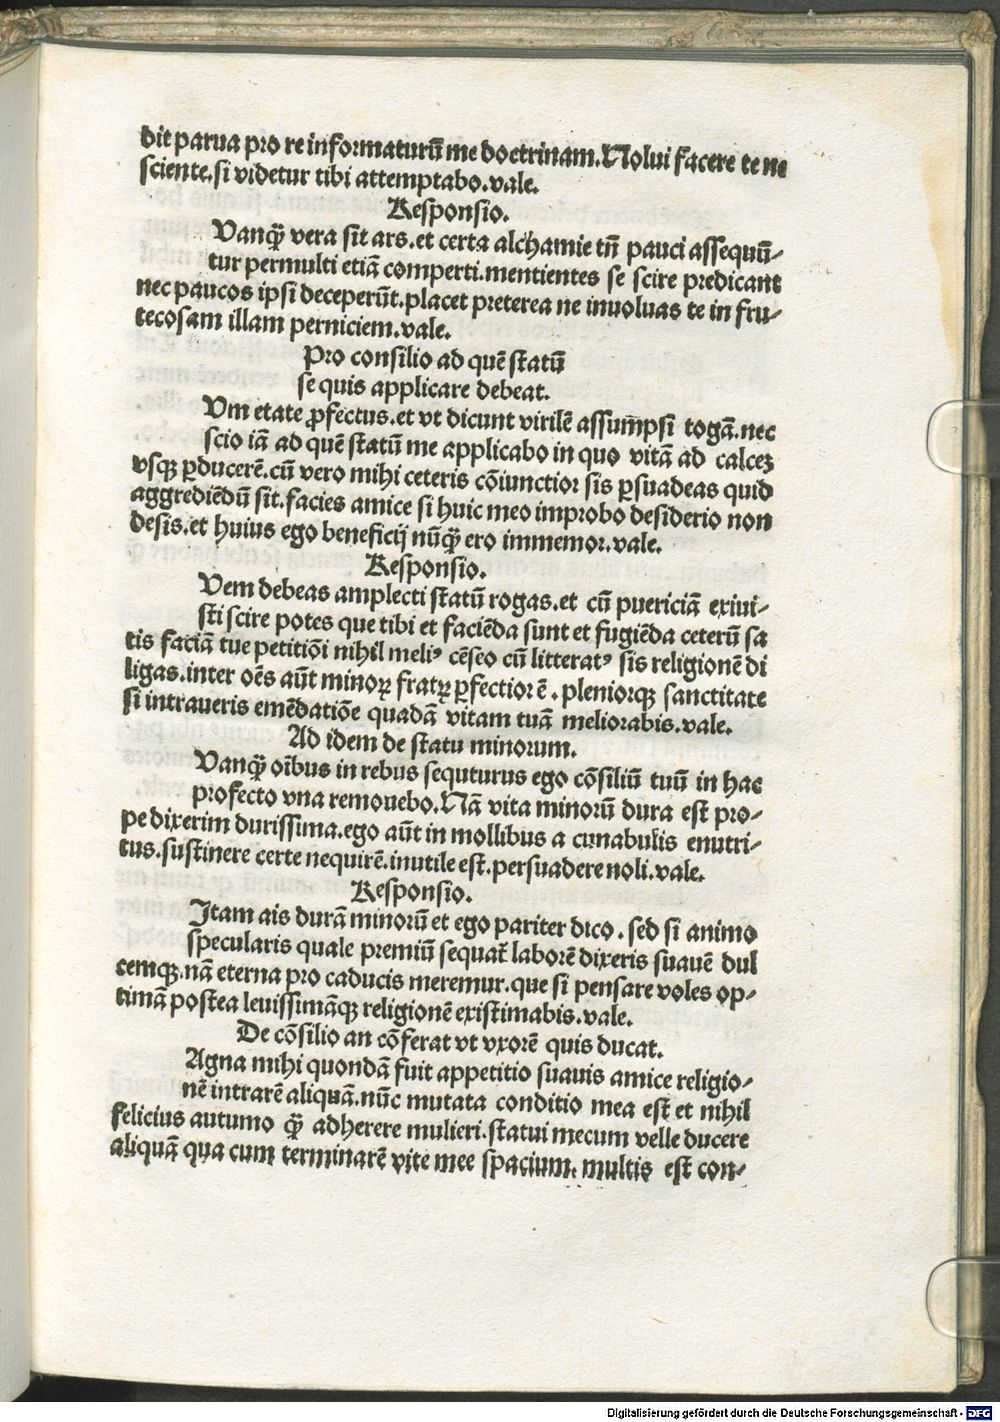 dit parua pro re informaturū me doctrinam.Nolui facere te ne
sciente.si videtur tibi attemptabo.vale.
Responsio.
Vanq̄ vera sit ars.et certa alchamie tn̄ pauci assequū-
tur permulti etiā comperti.mentientes se scire predicant
nec paucos ipsi deceperūt.placet preterea ne inuoluas te in fru-
tecosam illam perniciem.vale.
Pro consilio ad quē statū
se quis applicare debeat.
Vm etate ꝓfectus.et vt dicunt virilē assum̄psi togā.nec
scio iā ad quē statū me applicabo in quo vitā ad calcez
vsqꝫ ꝑducerē.cū vero mihi ceteris cōiunctior sis ꝑsuadeas quid
aggrediēdū sit.facies amice si huic meo improbo desiderio non
desis.et huius ego beneficij nūq̄ ero immemor.vale.
Responsio.
Vem debeas amplecti statū rogas.et cū puericiā exiui-
sti scire potes que tibi et faciēda sunt et fugiēda ceterū sa
tis faciā tue petitiōi nihil meliꝰ cēseo cū litteratꝰ sis religionē di
ligas.inter oēs aūt minoꝝ fratꝝ ꝑfectior ē. pleniorqꝫ sanctitate
si intraueris emēdatiōe quadā vitam tuā meliorabis.vale.
Ad idem de statu minorum.
Vanq̄ oībus in rebus sequturus ego cōsiliū tuū in hac
profecto vna remouebo.Nā vita minorū dura est pro-
pe dixerim durissima.ego aūt in mollibus a cunabulis enutri-
tus.sustinere certe nequirē.inutile est.persuadere noli.vale.
Responsio.
Itam ais durā minorū et ego pariter dico. sed si animo
specularis quale premiū sequat̄ laborē dixeris suauē dul
cemqꝫ.nā eterna pro caducis meremur.que si pensare voles op-
timā postea leuissimāqꝫ religionē existimabis.vale.
De cōsilio an cōferat vt vxorē quis ducat.
Agna mihi quondā fuit appetitio suauis amice religio-
nē intrarē aliquā.nūc mutata conditio mea est et nihil
felicius autumo q̄ adherere mulieri.statui mecum velle ducere
aliquā qua cum terminarē vite mee spacium. multis est con-
Digitalisierung gefördert durch die Deutsche Forschungsgemeinschaft - DFG